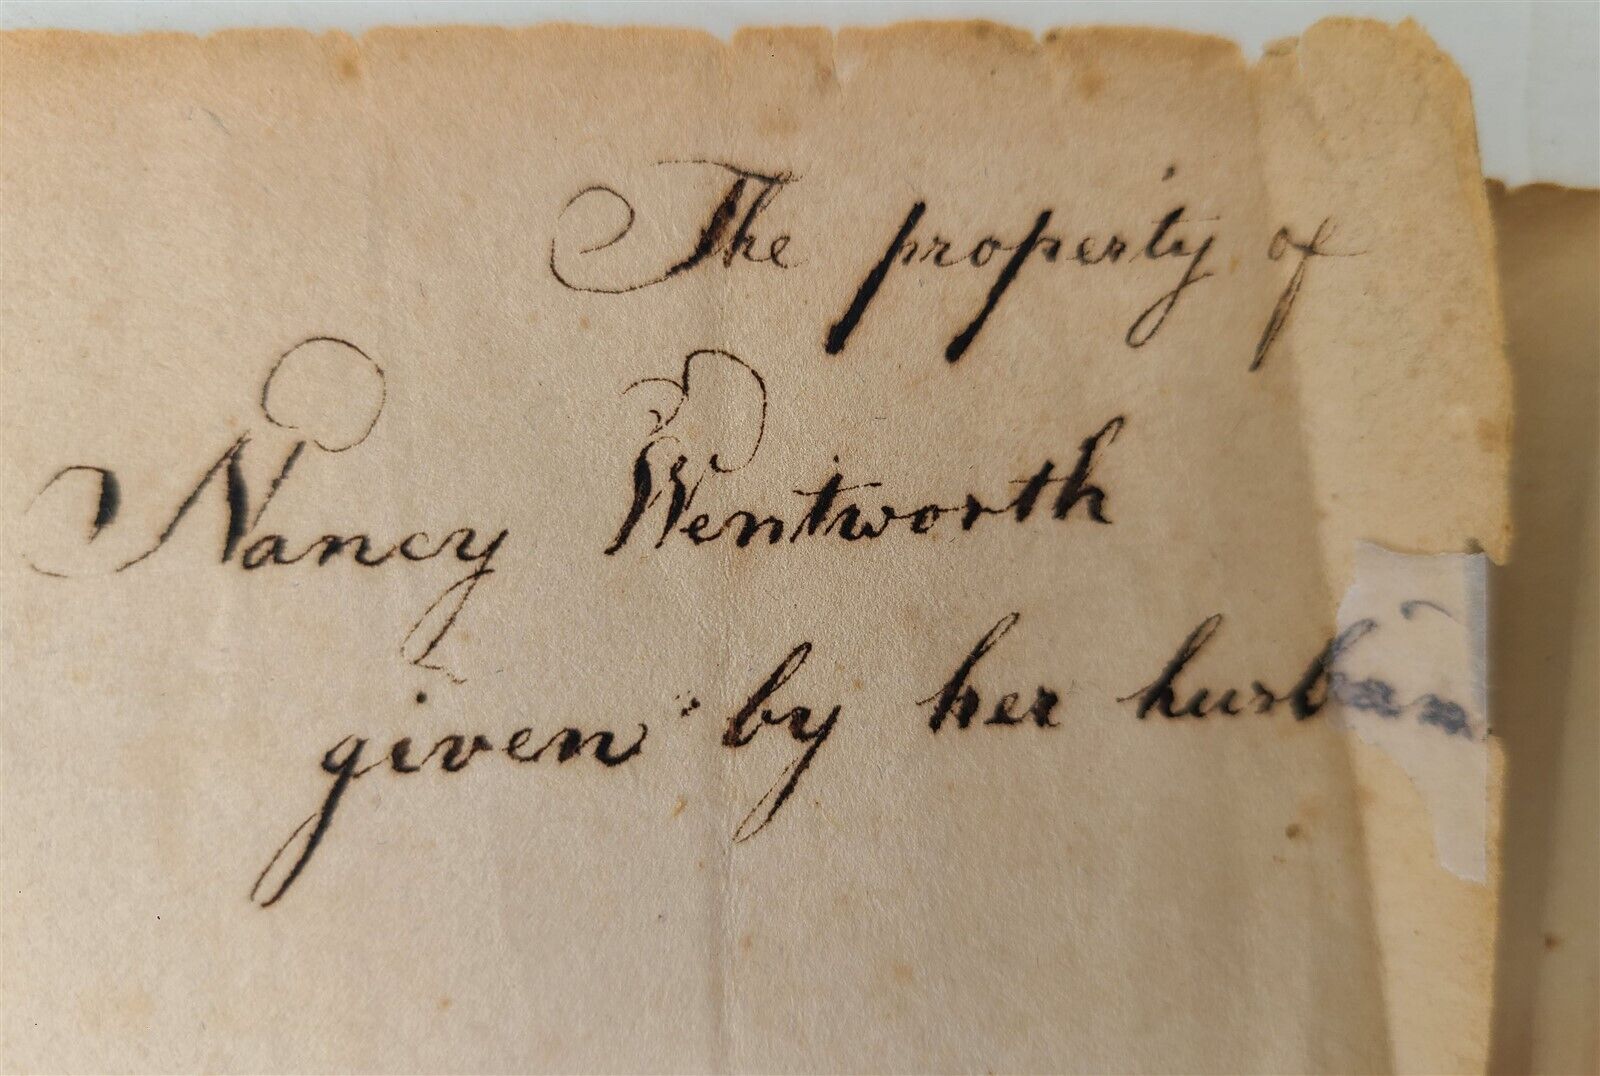 The property of
Nancy Wentworth
given by her husban